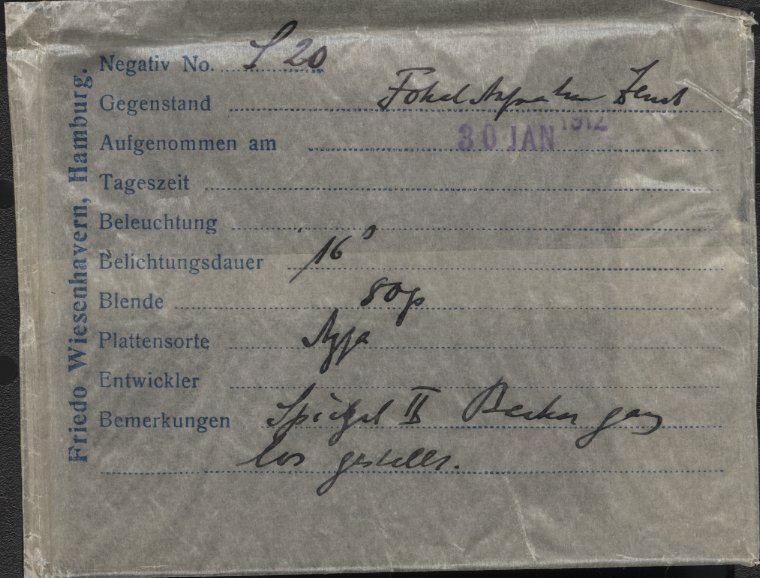 Friedo Wiesenhavern, Hamburg.
Negativ No. S 20
Gegenstand Fokal Zenit
Aufgenommen am 30 JAN 1912
Tageszeit
Beleuchtung
Belichtungsdauer 16 s
Blende 80
Plattensorte Agfa
Entwickler
Bemerkungen Spiegel II ganz
los gestellt.